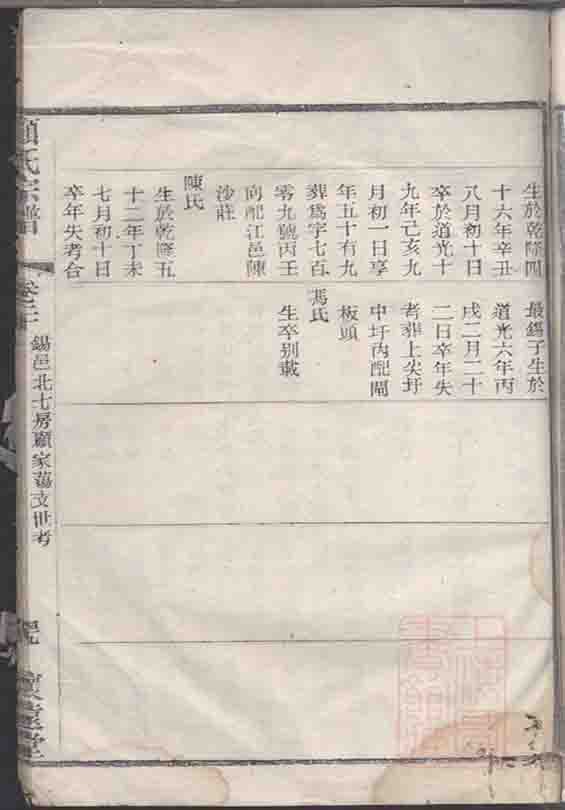 生於乾隆四
十六年辛丑
八月初十日
卒於道光十
九年己亥九
月初一日享
年五十有九
葬爲字七百
零九號丙壬
向配江邑陳
沙莊
陳氏
生於乾隆五
十二年丁未
七月初十日
卒年失考合
最錫子生於
道光六年丙
戌二月二十
二日卒年失
考葬上尖圩
中圩丙配閘
板頭
馮氏
生卒别載
顧氏宗譜
錫邑北七房顧家蕩支世考